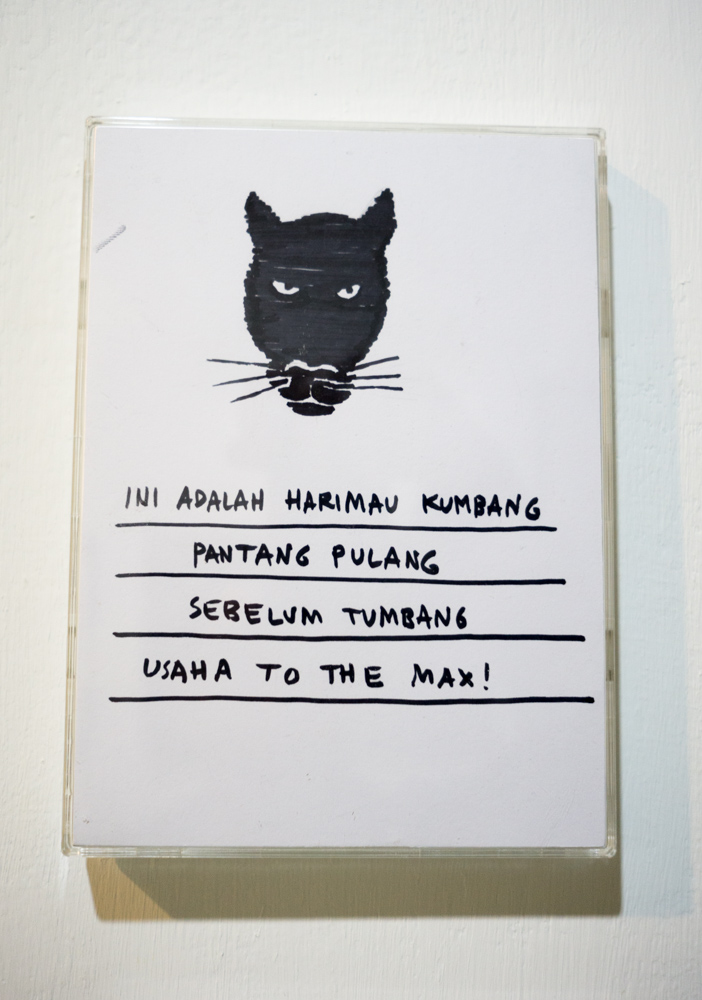 INI ADALAH HARIMAU KUMBANG
PANTANG PULANG
SEBELUM TUMBANG
USAHA TO THE MAX!